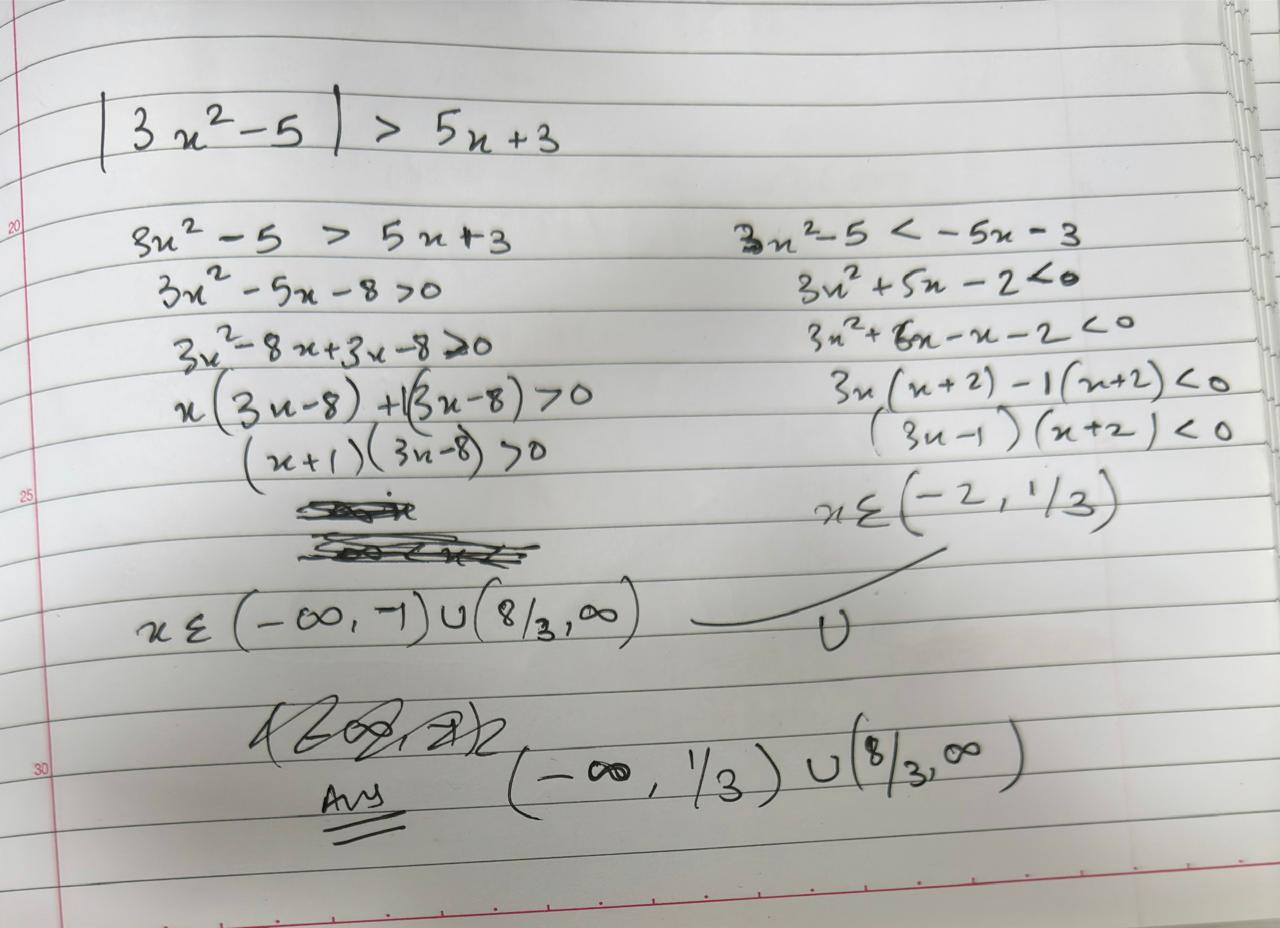 |3x² - 5| > 5x + 3
20
3x² - 5 > 5x + 3
3x² - 5x - 8 > 0
3x² - 8x + 3x - 8 > 0
x(3x - 8) + 1(3x - 8) > 0
(x + 1)(3x - 8) > 0
25
x ∈ (-∞, -1) ∪ (8/3, ∞)
3x² - 5 < -5x - 3
3x² + 5x - 2 < 0
3x² + 6x - x - 2 < 0
3x(x + 2) - 1(x + 2) < 0
(3x - 1)(x + 2) < 0
x ∈ (-2, 1/3)
∪
30
Ans (-∞, 1/3) ∪ (8/3, ∞)